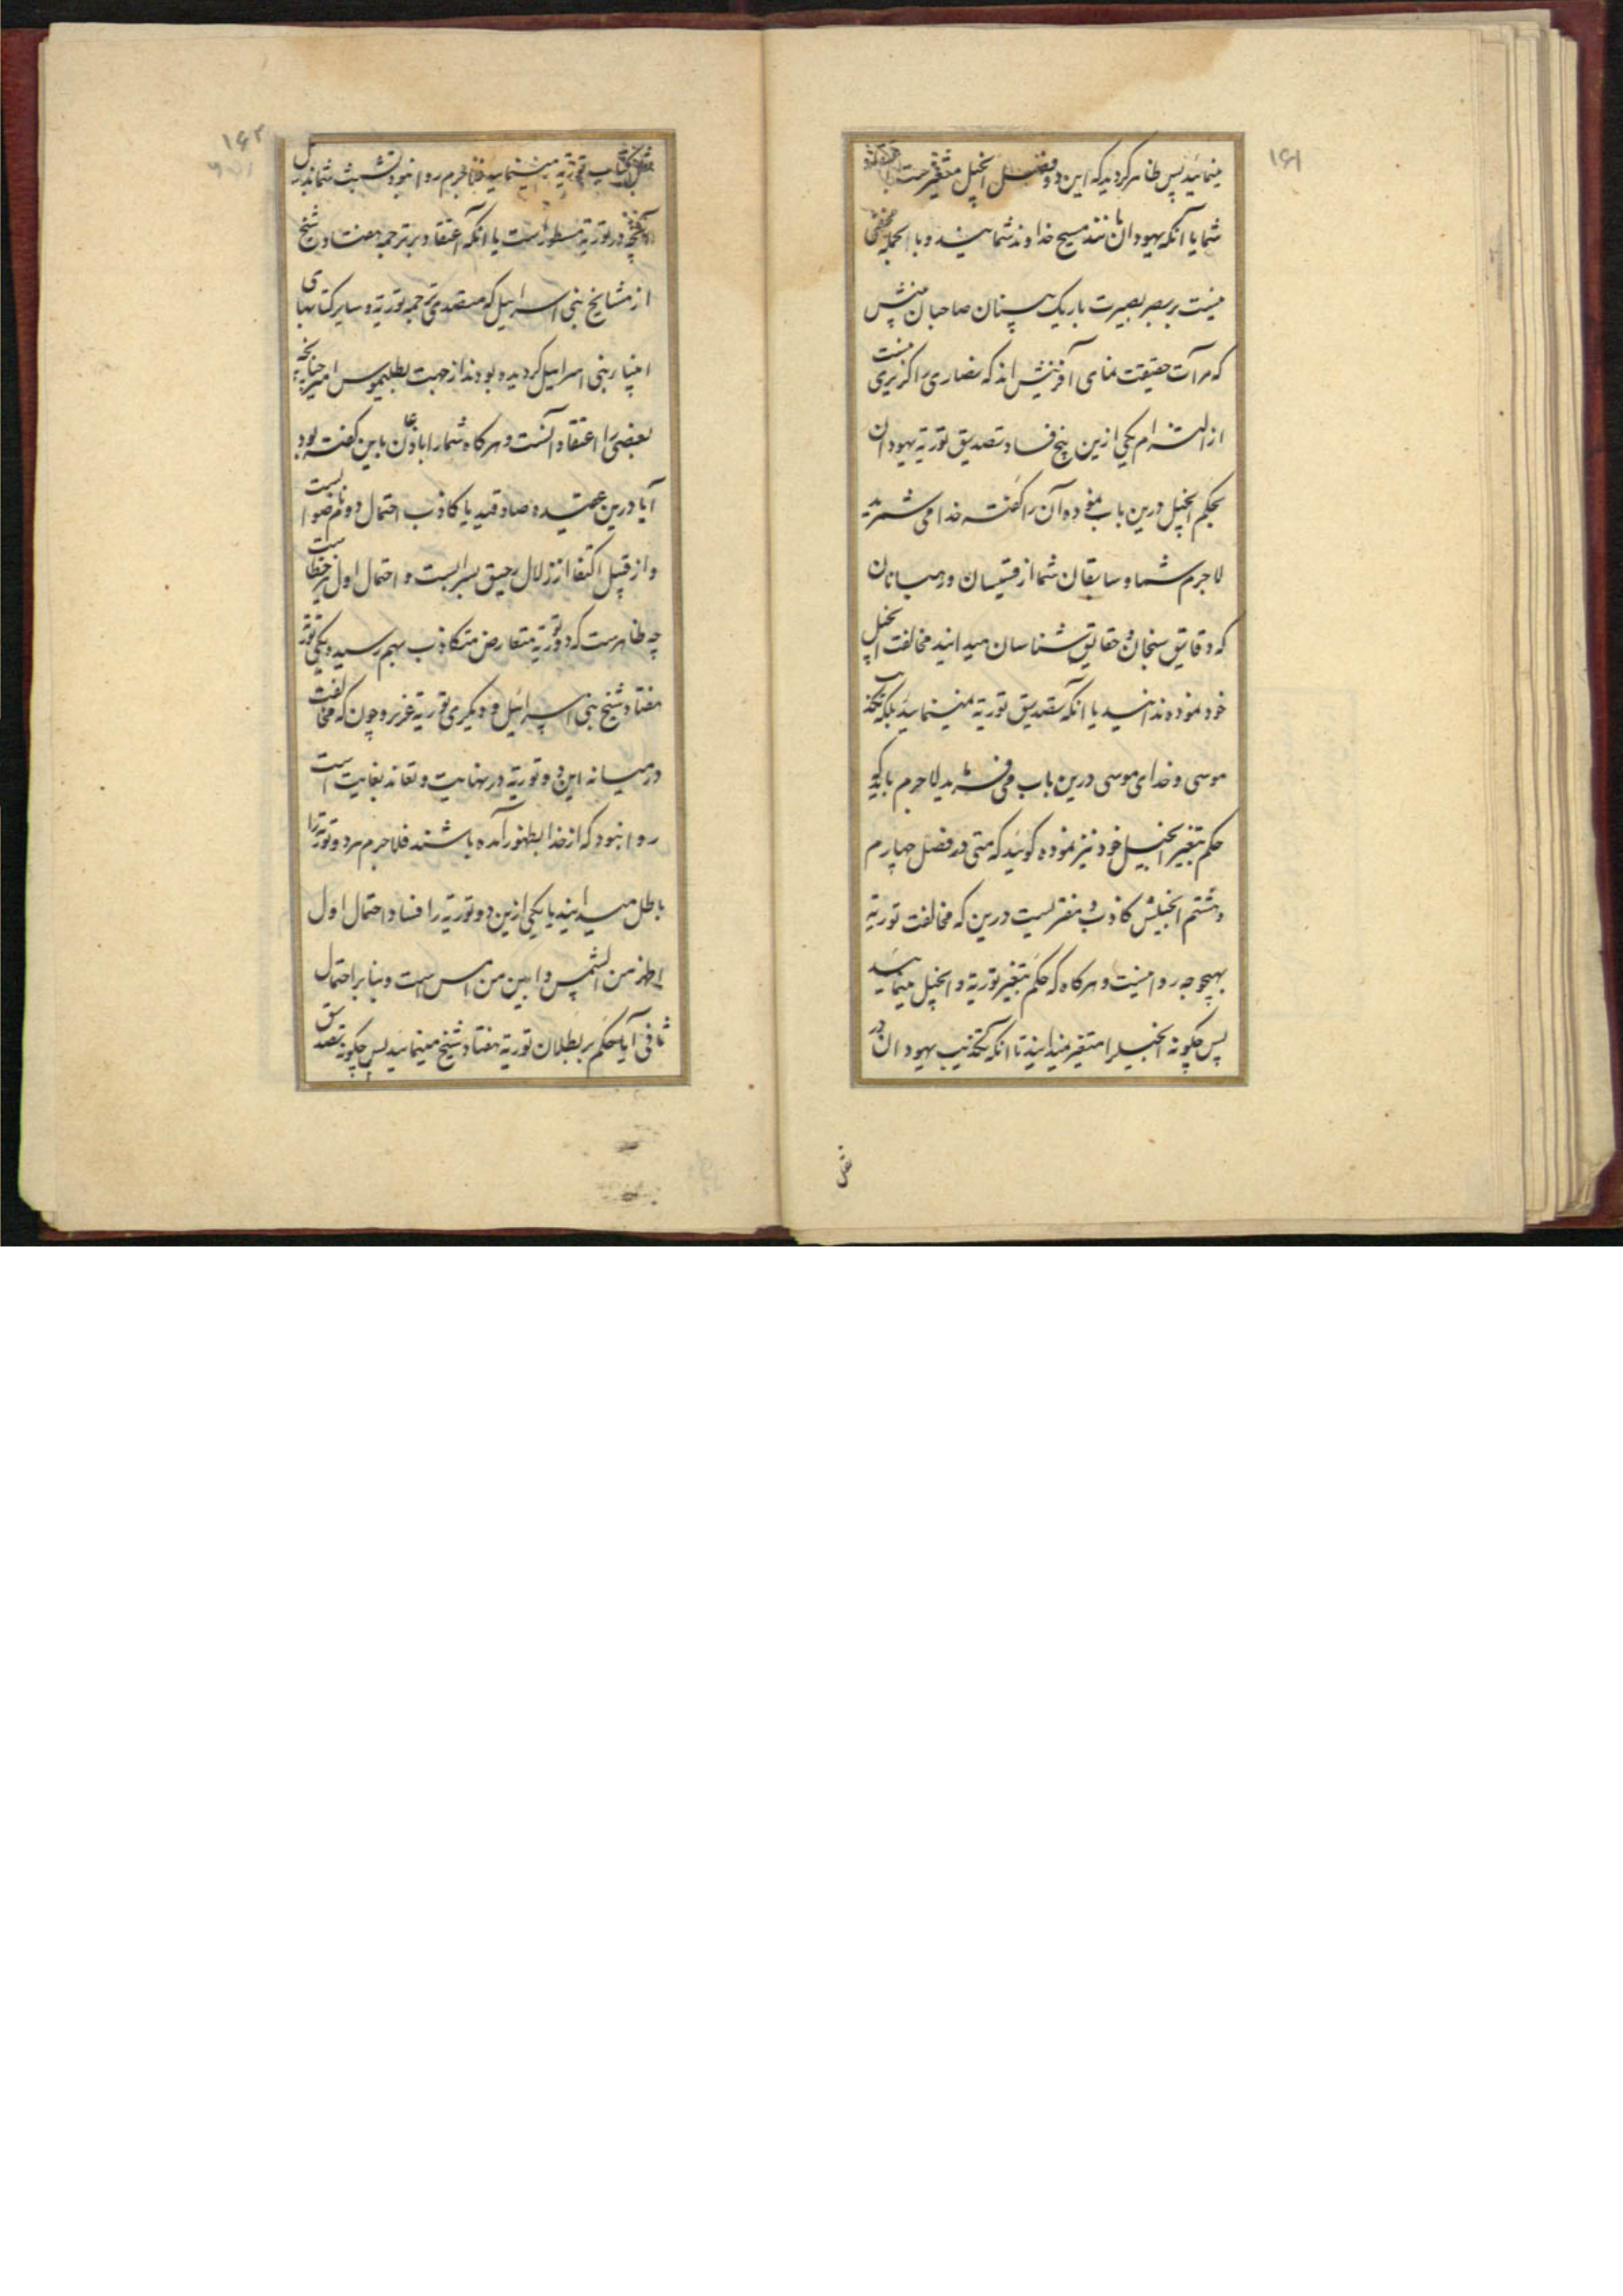 ۱۶۱
مینمائید پس ظاهر گردید که این دو فصل انجیل متغیرست
شما یا آنکه یهودان مانند مسیح خداوند شما نیند و بالجمله مخفی
نیست بر بصر بصیرت باریک بینان صاحبان بینش
که مرآت حقیقت نمای آفرینش اند که نصاری را گزیری نیست
از التزام یکی ازین پنج فساد تصدیق توریة یهودان
بحکم انجیل درین باب نموده آن را گفته خدا می شمرید
لاجرم شما و سابقان شما از قسیسان و رهبانان
که دقایق سنجان و حقایق شناسان میدانید مخالفت انجیل
خود نموده ندانید یا آنکه تصدیق توریة نمینمائید بلکه تکذیب
موسی و خدای موسی درین باب می فرمائید لاجرم باید که
حکم بتغیر انجیل خود نیز نموده گوئید که متی در فصل چهارم
و هشتم انجیلش کاذب و مفتریست درین که مخالفت توریة
بهیچوجه روا نیست و هرگاه که حکم بتغیر توریة و انجیل مینمائید
پس چگونه انجیلرا متغیر نمیدانید تا آنکه تکذیب یهودان در
۱۶۲
کتاب توریة مینمائید فلاجرم روا نبود تشبث شما بدلیل
آنچه در توریة مسطور است یا آنکه اعتقاد بر ترجمه هفتاد شیخ
از مشایخ بنی اسرائیل که متصدی ترجمه توریة و سایر کتابهای
انبیاء بنی اسرائیل گردیده بودند از جهت بطلیموس امیر چنانچه
بعضی را اعتقاد آنست و هرگاه شما را اذعان باین گفته بود
آیا درین عقیده صادقید یا کاذب احتمال دوم ناصوابست
و از قبیل اکتفا از زلال رحیق بسرابست و احتمال اول نیز خطاست
چه ظاهرست که دو توریة متعارض متکاذب بهم رسیده یکی توریة
هفتاد شیخ بنی اسرائیل و دیگری توریة عزیر و چون که مخالفت
در میانه این دو توریة در نهایت و تعاند بغایت است
روا نبود که از خدا بظهور آمده باشند فلاجرم هر دو توریة را
باطل میدانید یا یکی ازین دو توریة را فساد احتمال اول
اظهر من الشمس و ابین من امس است و بنابر احتمال
ثانی آیا حکم بر بطلان توریة هفتاد شیخ مینمائید پس چگونه تصدیق